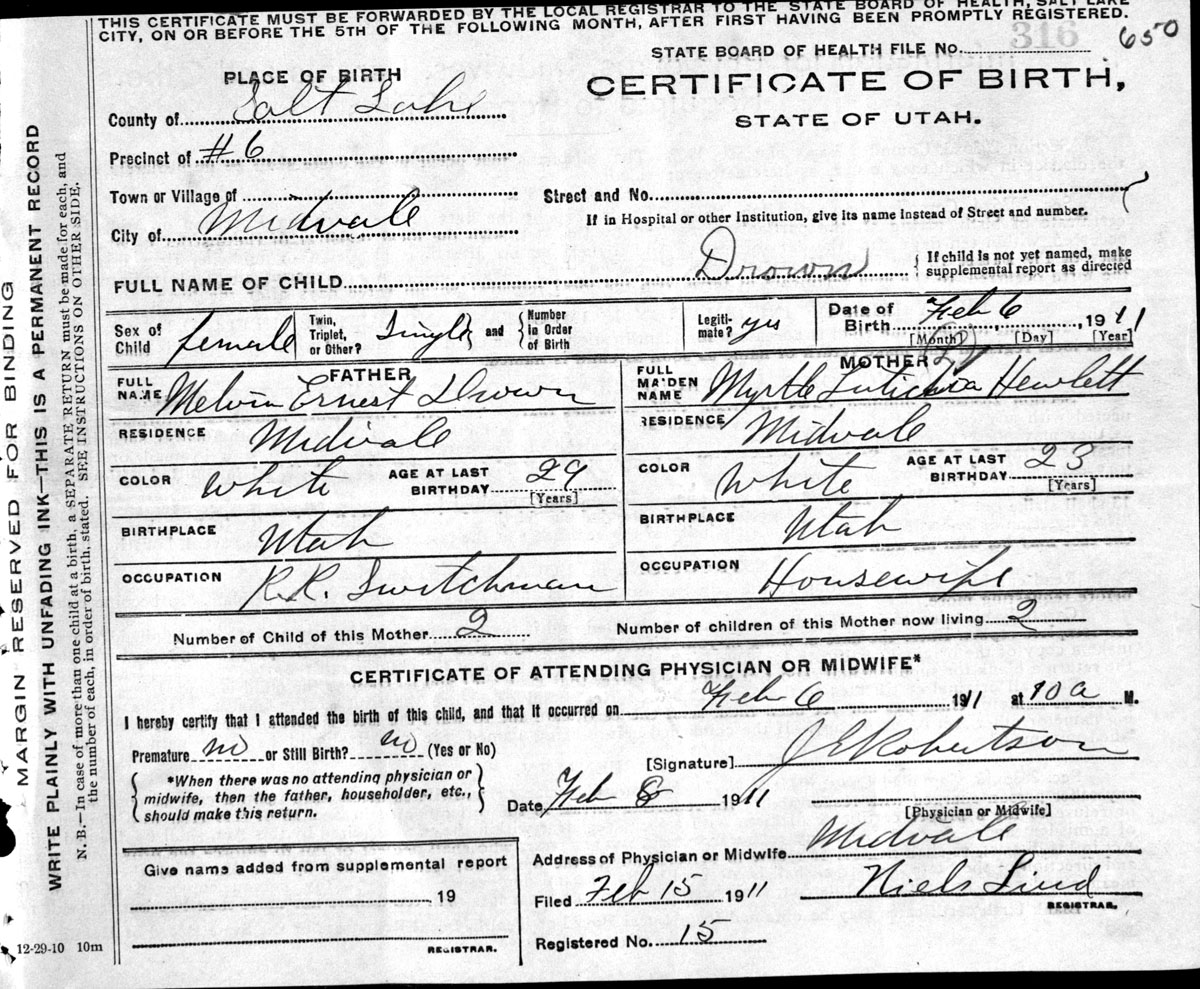 THIS CERTIFICATE MUST BE FORWARDED BY THE LOCAL REGISTRAR TO THE STATE BOARD OF HEALTH, SALT LAKE
CITY, ON OR BEFORE THE 5TH OF THE FOLLOWING MONTH, AFTER FIRST HAVING BEEN PROMPTLY REGISTERED.
STATE BOARD OF HEALTH FILE NO. 316 650
PLACE OF BIRTH
CERTIFICATE OF BIRTH,
STATE OF UTAH.
County of Salt Lake
Precinct of #6
Town or Village of
Street and No.
If in Hospital or other Institution, give its name instead of Street and number.
City of Midvale
FULL NAME OF CHILD Drown { If child is not yet named, make
supplemental report as directed
Sex of Child female
Twin, Triplet, or Other? Single and { Number in Order of Birth
Legiti-mate? yes
Date of Birth Feb 6, 1911
[Month] [Day] [Year]
FATHER
FULL NAME Melvin Ernest Drown
RESIDENCE Midvale
COLOR White AGE AT LAST BIRTHDAY 29 [Years]
BIRTHPLACE Utah
OCCUPATION R.R. Switchman
MOTHER
FULL MAIDEN NAME Myrtle Hewlett
RESIDENCE Midvale
COLOR White AGE AT LAST BIRTHDAY 23 [Years]
BIRTHPLACE Utah
OCCUPATION Housewife
Number of Child of this Mother 2 Number of children of this Mother now living 2
CERTIFICATE OF ATTENDING PHYSICIAN OR MIDWIFE*
I hereby certify that I attended the birth of this child, and that it occurred on Feb 6 1911 at 10 a M.
Premature no or Still Birth? no (Yes or No)
[Signature] J E Robertson
{ *When there was no attending physician or
midwife, then the father, householder, etc.,
should make this return. }
Date Feb 8 1911
[Physician or Midwife]
Address of Physician or Midwife Midvale
Give name added from supplemental report
19
REGISTRAR.
Filed Feb 15 1911 Niels Lind
REGISTRAR.
Registered No. 15
12-29-10 10m
MARGIN RESERVED FOR BINDING
WRITE PLAINLY WITH UNFADING INK—THIS IS A PERMANENT RECORD
N. B.—In case of more than one child at a birth, a SEPARATE RETURN must be made for each, and
the number of each, in order of birth, stated. SEE INSTRUCTIONS ON OTHER SIDE.